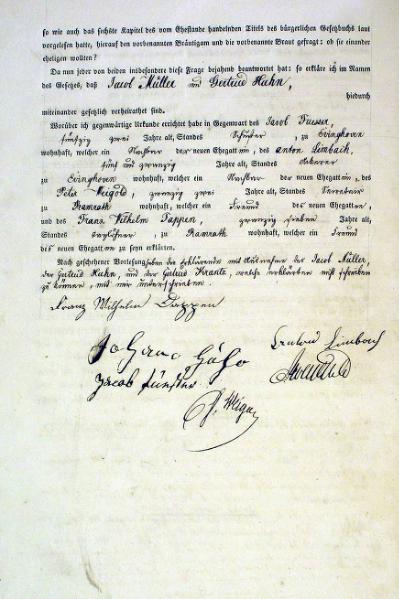 so wie auch das sechste Kapitel des vom Ehestande handelnden Titels des bürgerlichen Gesetzbuchs laut
vorgelesen hatte, hierauf den vorbenannten Bräutigam und die vorbenannte Braut gefragt: ob sie einander
ehelichen wollten?
Da nun jeder von beiden insbesondere diese Frage bejahend beantwortet hat: so erkläre ich im Namen
des Gesetzes, daß Jacob Müller und Gertrud Huhn,
hiedurch
miteinander gesetzlich verheirathet sind.
Worüber ich gegenwärtige Urkunde errichtet habe in Gegenwart des Jacob
fünfzig zwei Jahre alt, Standes , zu Evinghoven
wohnhaft, welcher ein Nachbar der neuen Ehegatten, des Anton Limbach,
fünf und zwanzig Jahre alt, Standes Ackerer
zu Evinghoven wohnhaft, welcher ein Nachbar der neuen Ehegatten, des
zwanzig zwei Jahre alt, Standes
zu Ramrath wohnhaft, welcher ein Freund des neuen Ehegatten,
und des Franz Wilhelm Pappen, zwanzig sieben Jahre alt,
Standes , zu Ramrath wohnhaft, welcher ein Freund
des neuen Ehegatten zu seyn erklärten.
Nach geschehener Vorlesung haben die Erklärende mit Ausnahme der Jacob Müller,
der Gertrud Huhn, und der , welche erklärten nicht schreiben
zu können, mit mir unterschrieben.
Franz Wilhelm Pappen
Limbach
Jacob